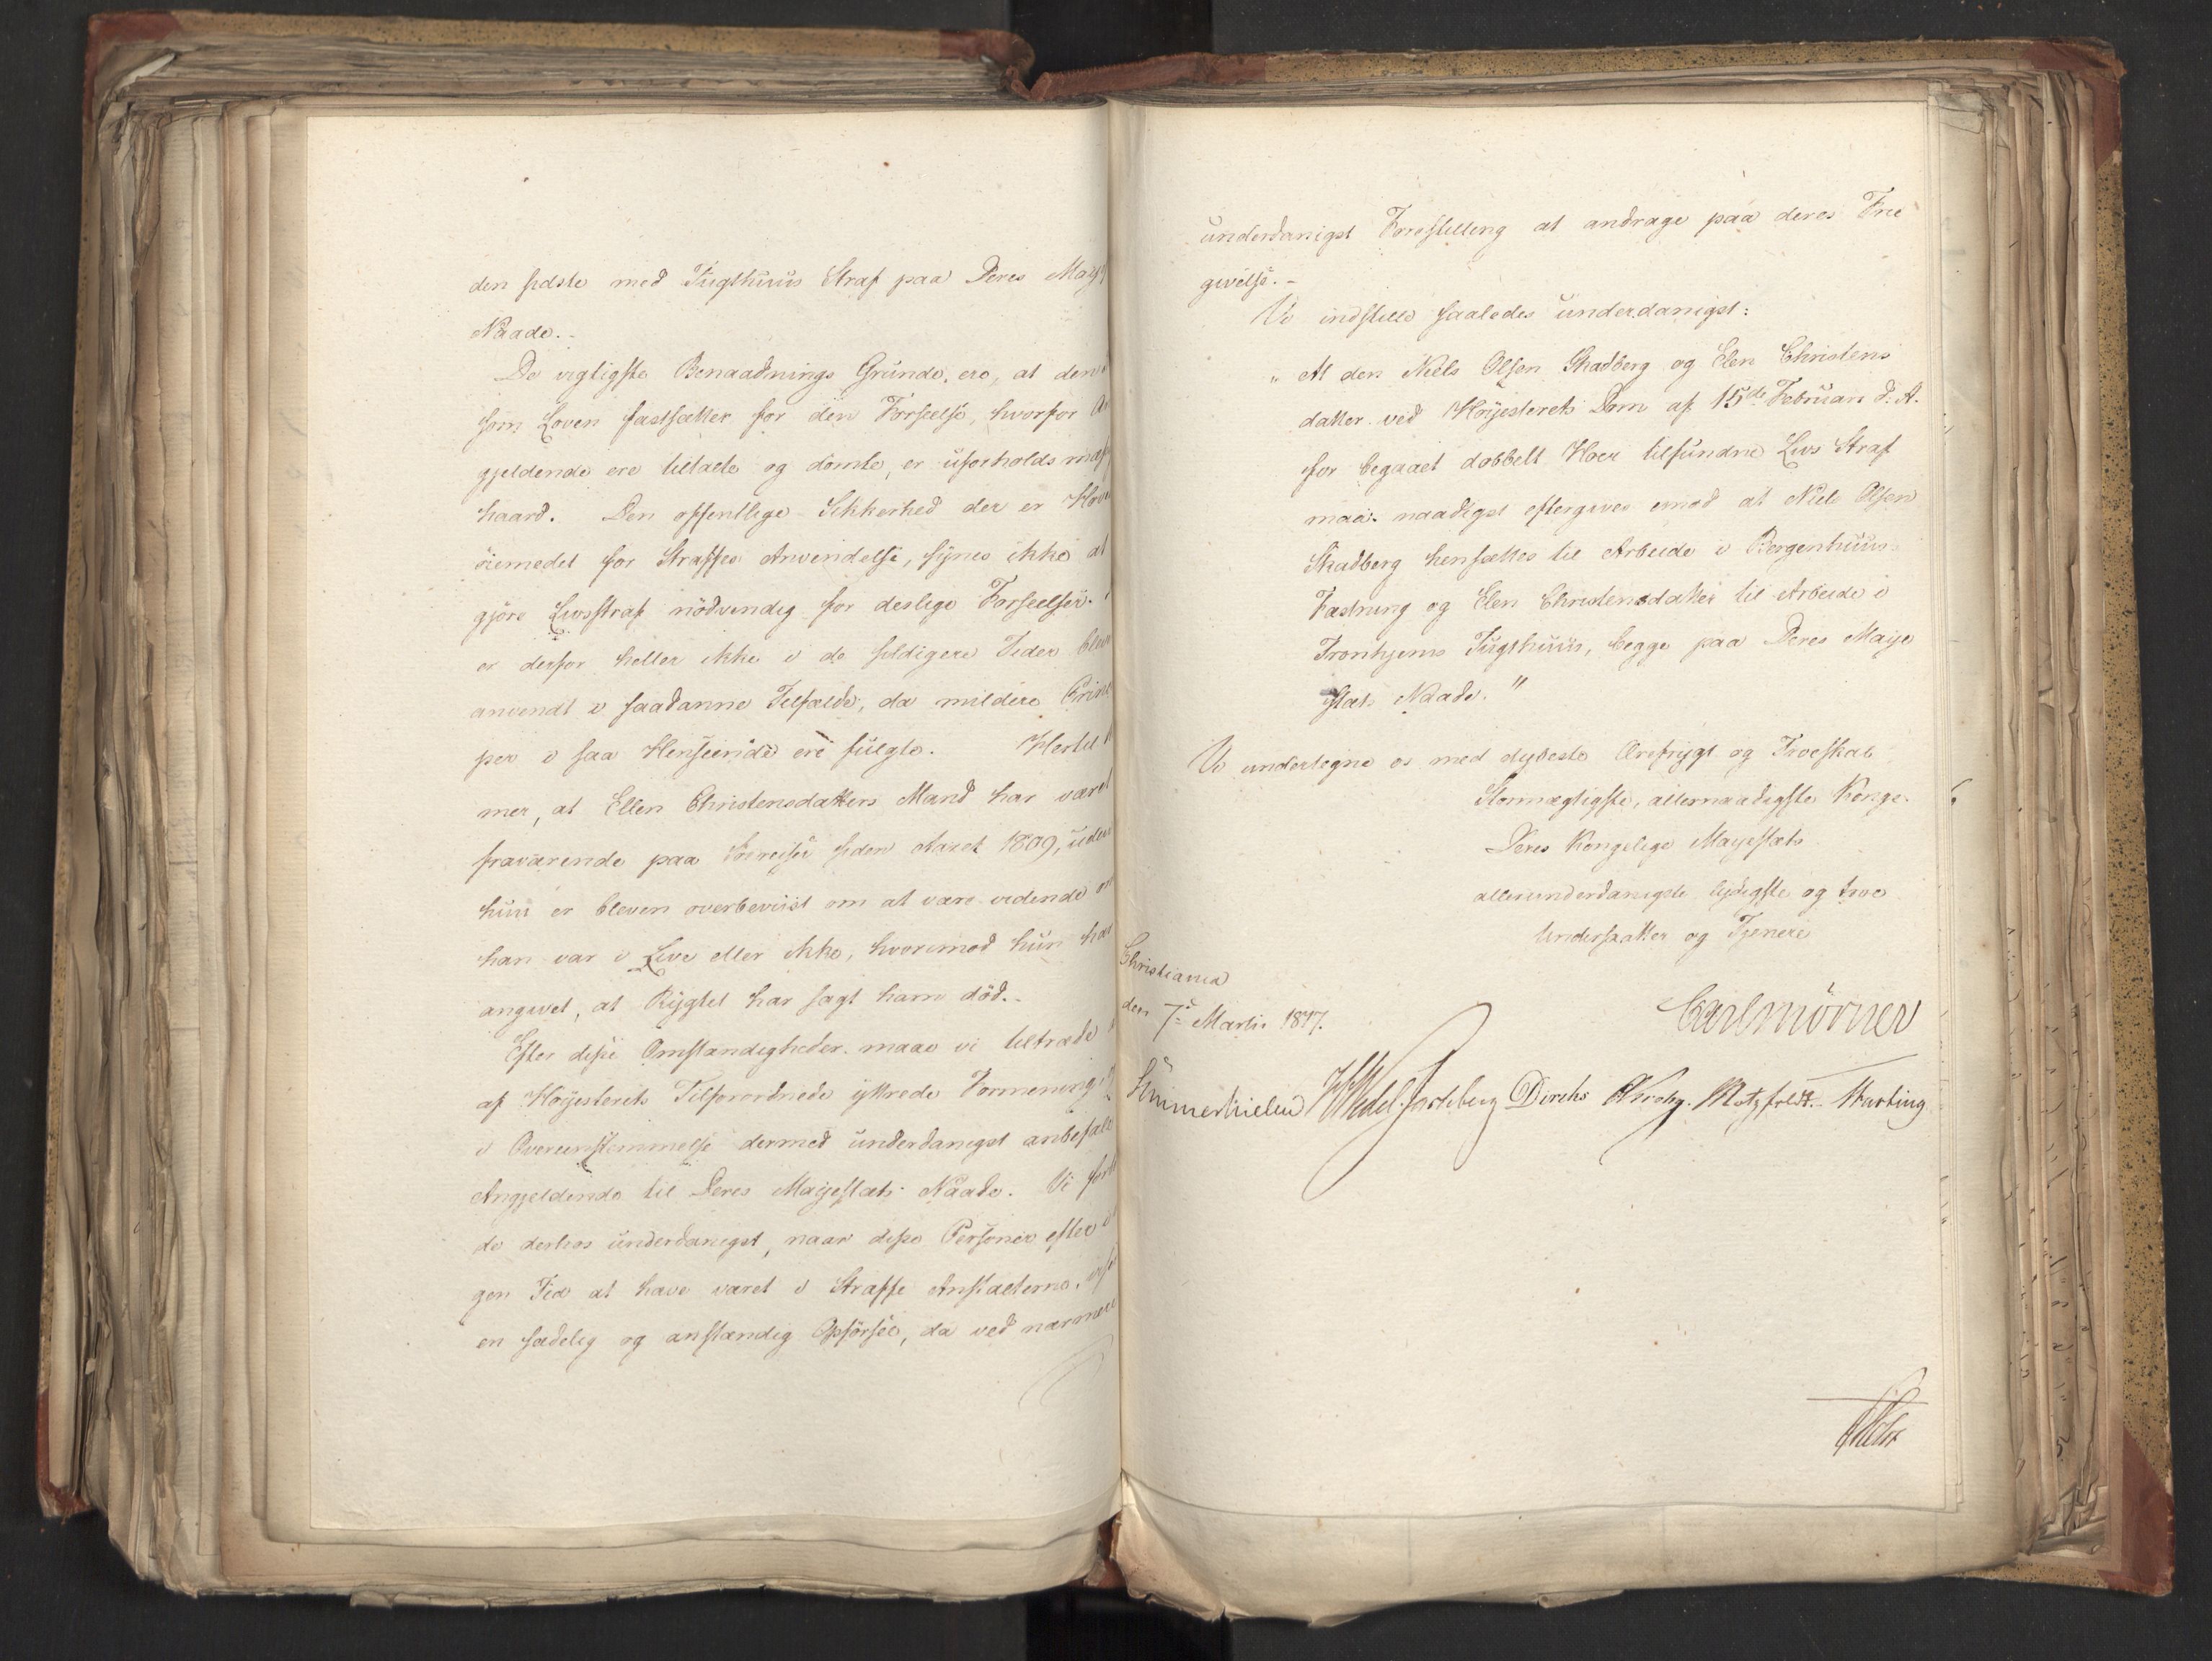 den sidste med Tugthuus Straf paa Deres Maj
Naade.-
De vigtigste Benaadnings Grunde, ere, at den
som Loven fastsætter for den Forseelse, hvorfor An
gjeldende ere tiltalte og dömte, er uforholdsmæs
haard. Den offentlige Sikkerhed der er Hoved
öiemedet for Straffes Anvendelse, synes ikke at
gjöre Livsstraf nödvendig for deslige Forseelser.
er derfor heller ikke i de sildigere Tider bleven
anvendt i saadanne Tilfælde, da mildere Princi
per i saa Henseende ere fulgte. Hertil
mer, at Ellen Christensdatters Mand har været
fraværende paa Söereiser siden Aaret 1809, uden
hun er bleven overbeviist om at være vidende om
han var i Live eller ikke, hvorimod hun har
angivet, at Rygtet har sagt ham död.-
Efter disse Omstændigheder maae vi tiltræde
af Höyesterets Tilforordnede yttrede Formening,
i Overeenstemmelse dermed underdanigst anbefale
Angjeldende til Deres Majestæts Naade. Vi
de derhos underdanigst, naar disse Personer efter
gen Tid at have været i Straffe Anstalterne,
en sædelig og anstændig Opförsel, da ved nærmere
underdanigst Forestilling at andrage paa deres Frie
givelse.-
Vi indstille saaledes underdanigst:
"At den Niels Olsen Skadberg og Elen Christens
datter ved Höyesterets Dom af 15de Februari d. A.
for begaaet dobbelt Hoer tilfundne Livs Straf
maa naadigst eftergives imod at Niels Olsen
Skadberg hensættes til Arbeide i Bergenhuus
Fæstning og Elen Christensdatter til Arbeide i
Tronhjems Tugthuus, begge paa Deres Maje
stæts Naade."
Vi undertegne os med dybeste Ærefrygt og Troeskab
Stormægtigste, allernaadigste Konge
Deres Kongelige Majestæts
allerunderdanigste lydigste og troe
Undersaatter og Tjenere
Christiania
den 7de Martii 1817.
Carl Mörner
Sommerhielm Wedel Jarlsberg Dircks Krohg. Motzfeldt. Harting